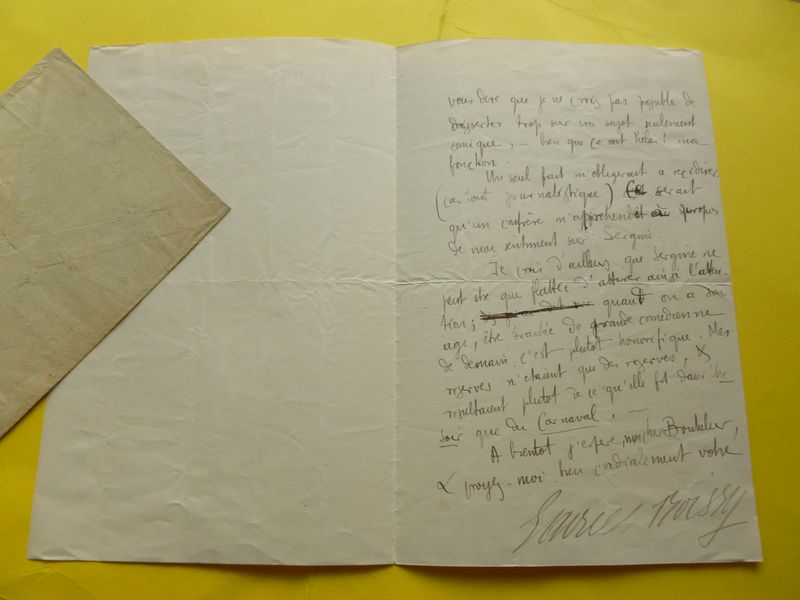 vous dire que je ne crois pas possible de
disserter trop sur un sujet seulement
comique, — bien que ce soit hélas! ma
fonction.
Un seul fait m'obligerait à récidiver
(cas tout journalistique) ce serait
qu'un confrère m'appréhendât à propos
de mon sentiment sur Sergine.
Je crois d'ailleurs que Sergine ne
peut être que flattée d'attirer ainsi l'atten-
tion; quand on a son
age, être traitée de grande comédienne
de demain c'est plutôt honorifique. Mes
réserves n'étaient que des réserves, &
résultaient plutôt de ce qu'elle fit dans Un
Soir que du Carnaval. —
A bientôt j'espère, mon cher Bouhélier,
& croyez-moi bien cordialement votre
Boissy